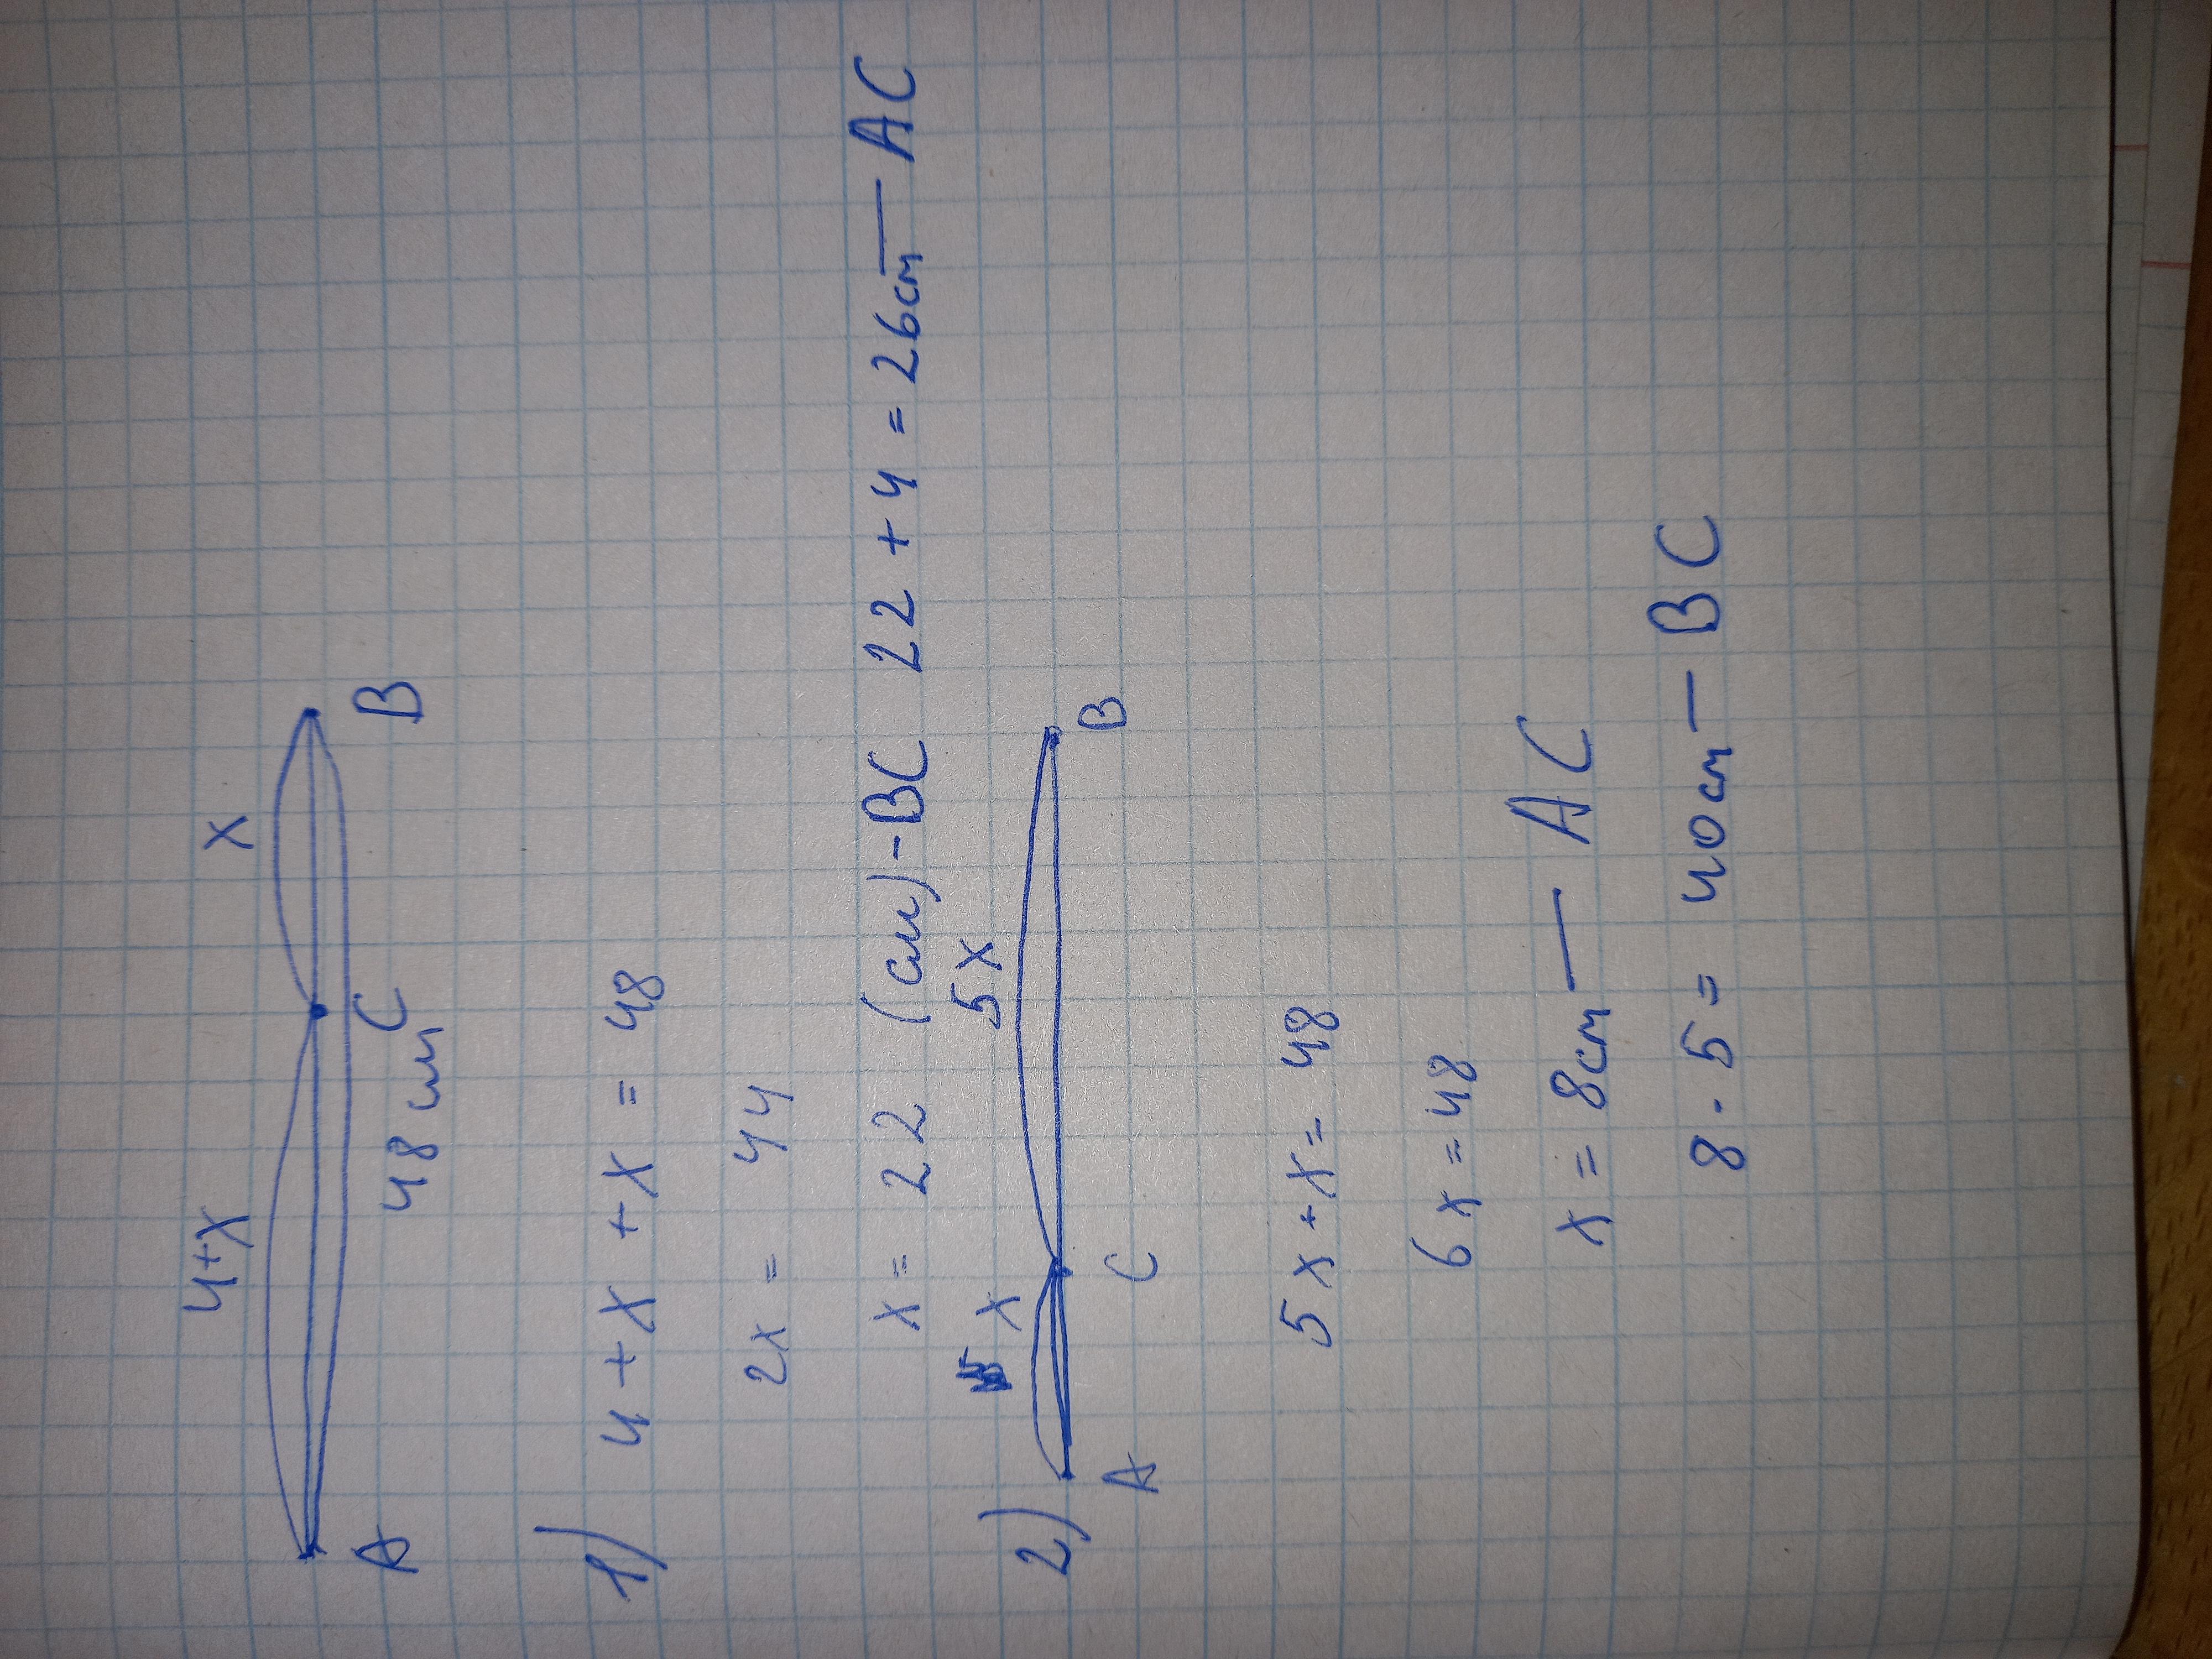 4+x x
A C B
48 см
1) 4 + x + x = 48
2x = 44
x = 22 (см) - BC 22 + 4 = 26 cm — AC
2) x 5x
A C B
5x + x = 48
6x = 48
x = 8 cm — AC
8 · 5 = 40 cm — BC